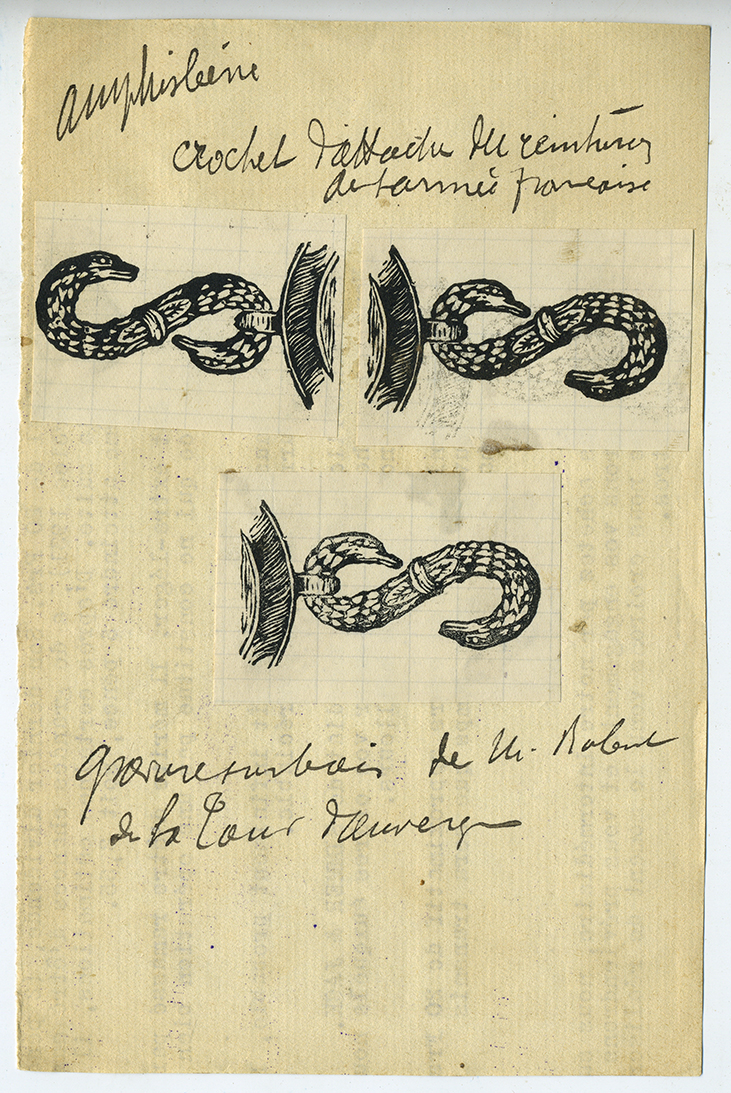 amphisbène
crochet d'attache des ceintures
de l'armée française
gravure sur bois de M. Robert
de la Tour d'auvergne